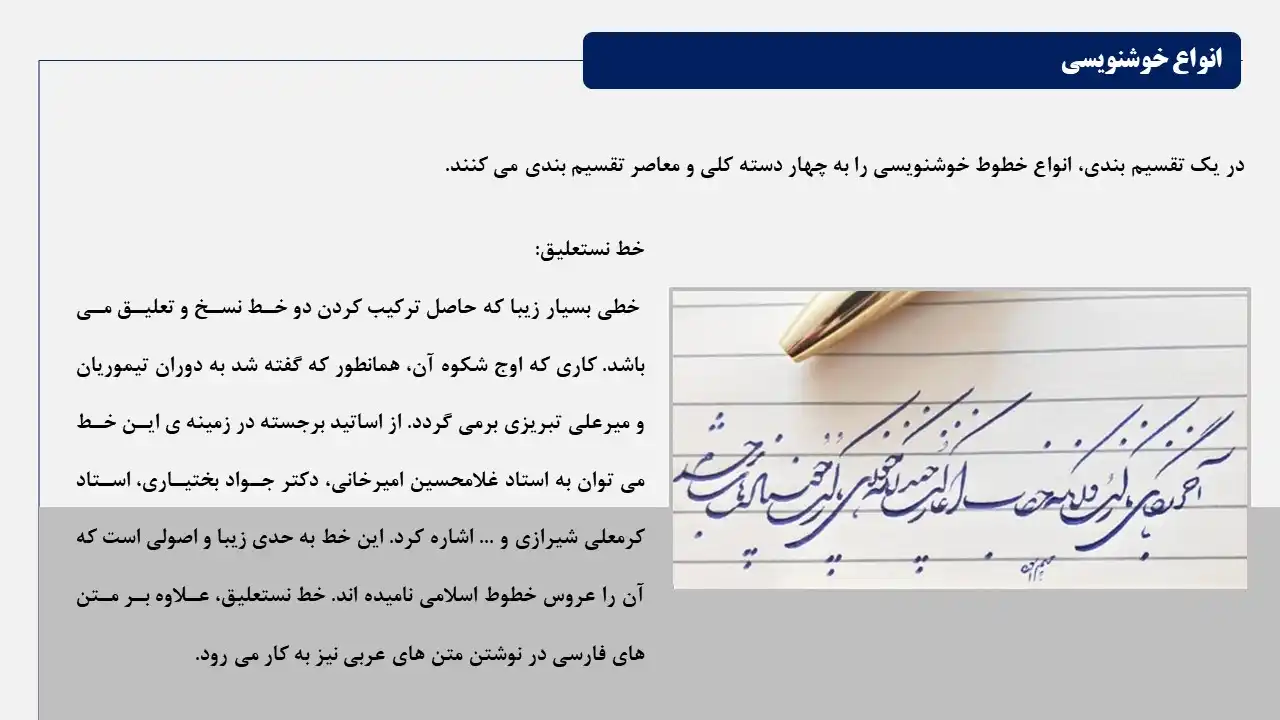 انواع خوشنویسی
در یک تقسیم بندی، انواع خطوط خوشنویسی را به چهار دسته کلی و معاصر تقسیم بندی می کنند.
خط نستعلیق:
خطی بسیار زیبا که حاصل ترکیب کردن دو خط نسخ و تعلیق می
باشد. کاری که اوج شکوه آن، همانطور که گفته شد به دوران تیموریان
و میرعلی تبریزی برمی گردد. از اساتید برجسته در زمینه ی این خط
می توان به استاد غلامحسین امیرخانی، دکتر جواد بختیاری، استاد
کرمعلی شیرازی و ... اشاره کرد. این خط به حدی زیبا و اصولی است که
آن را عروس خطوط اسلامی نامیده اند. خط نستعلیق، علاوه بر متن
های فارسی در نوشتن متن های عربی نیز به کار می رود.